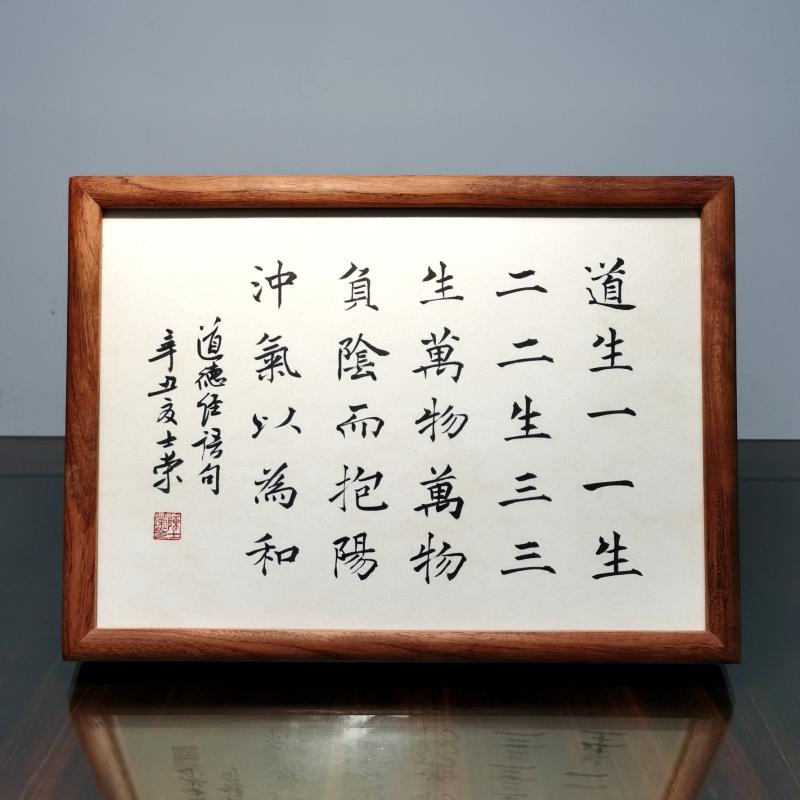 道生一一生
二二生三三
生萬物萬物
負陰而抱陽
沖氣以為和
道德经语句
辛丑夏士荣